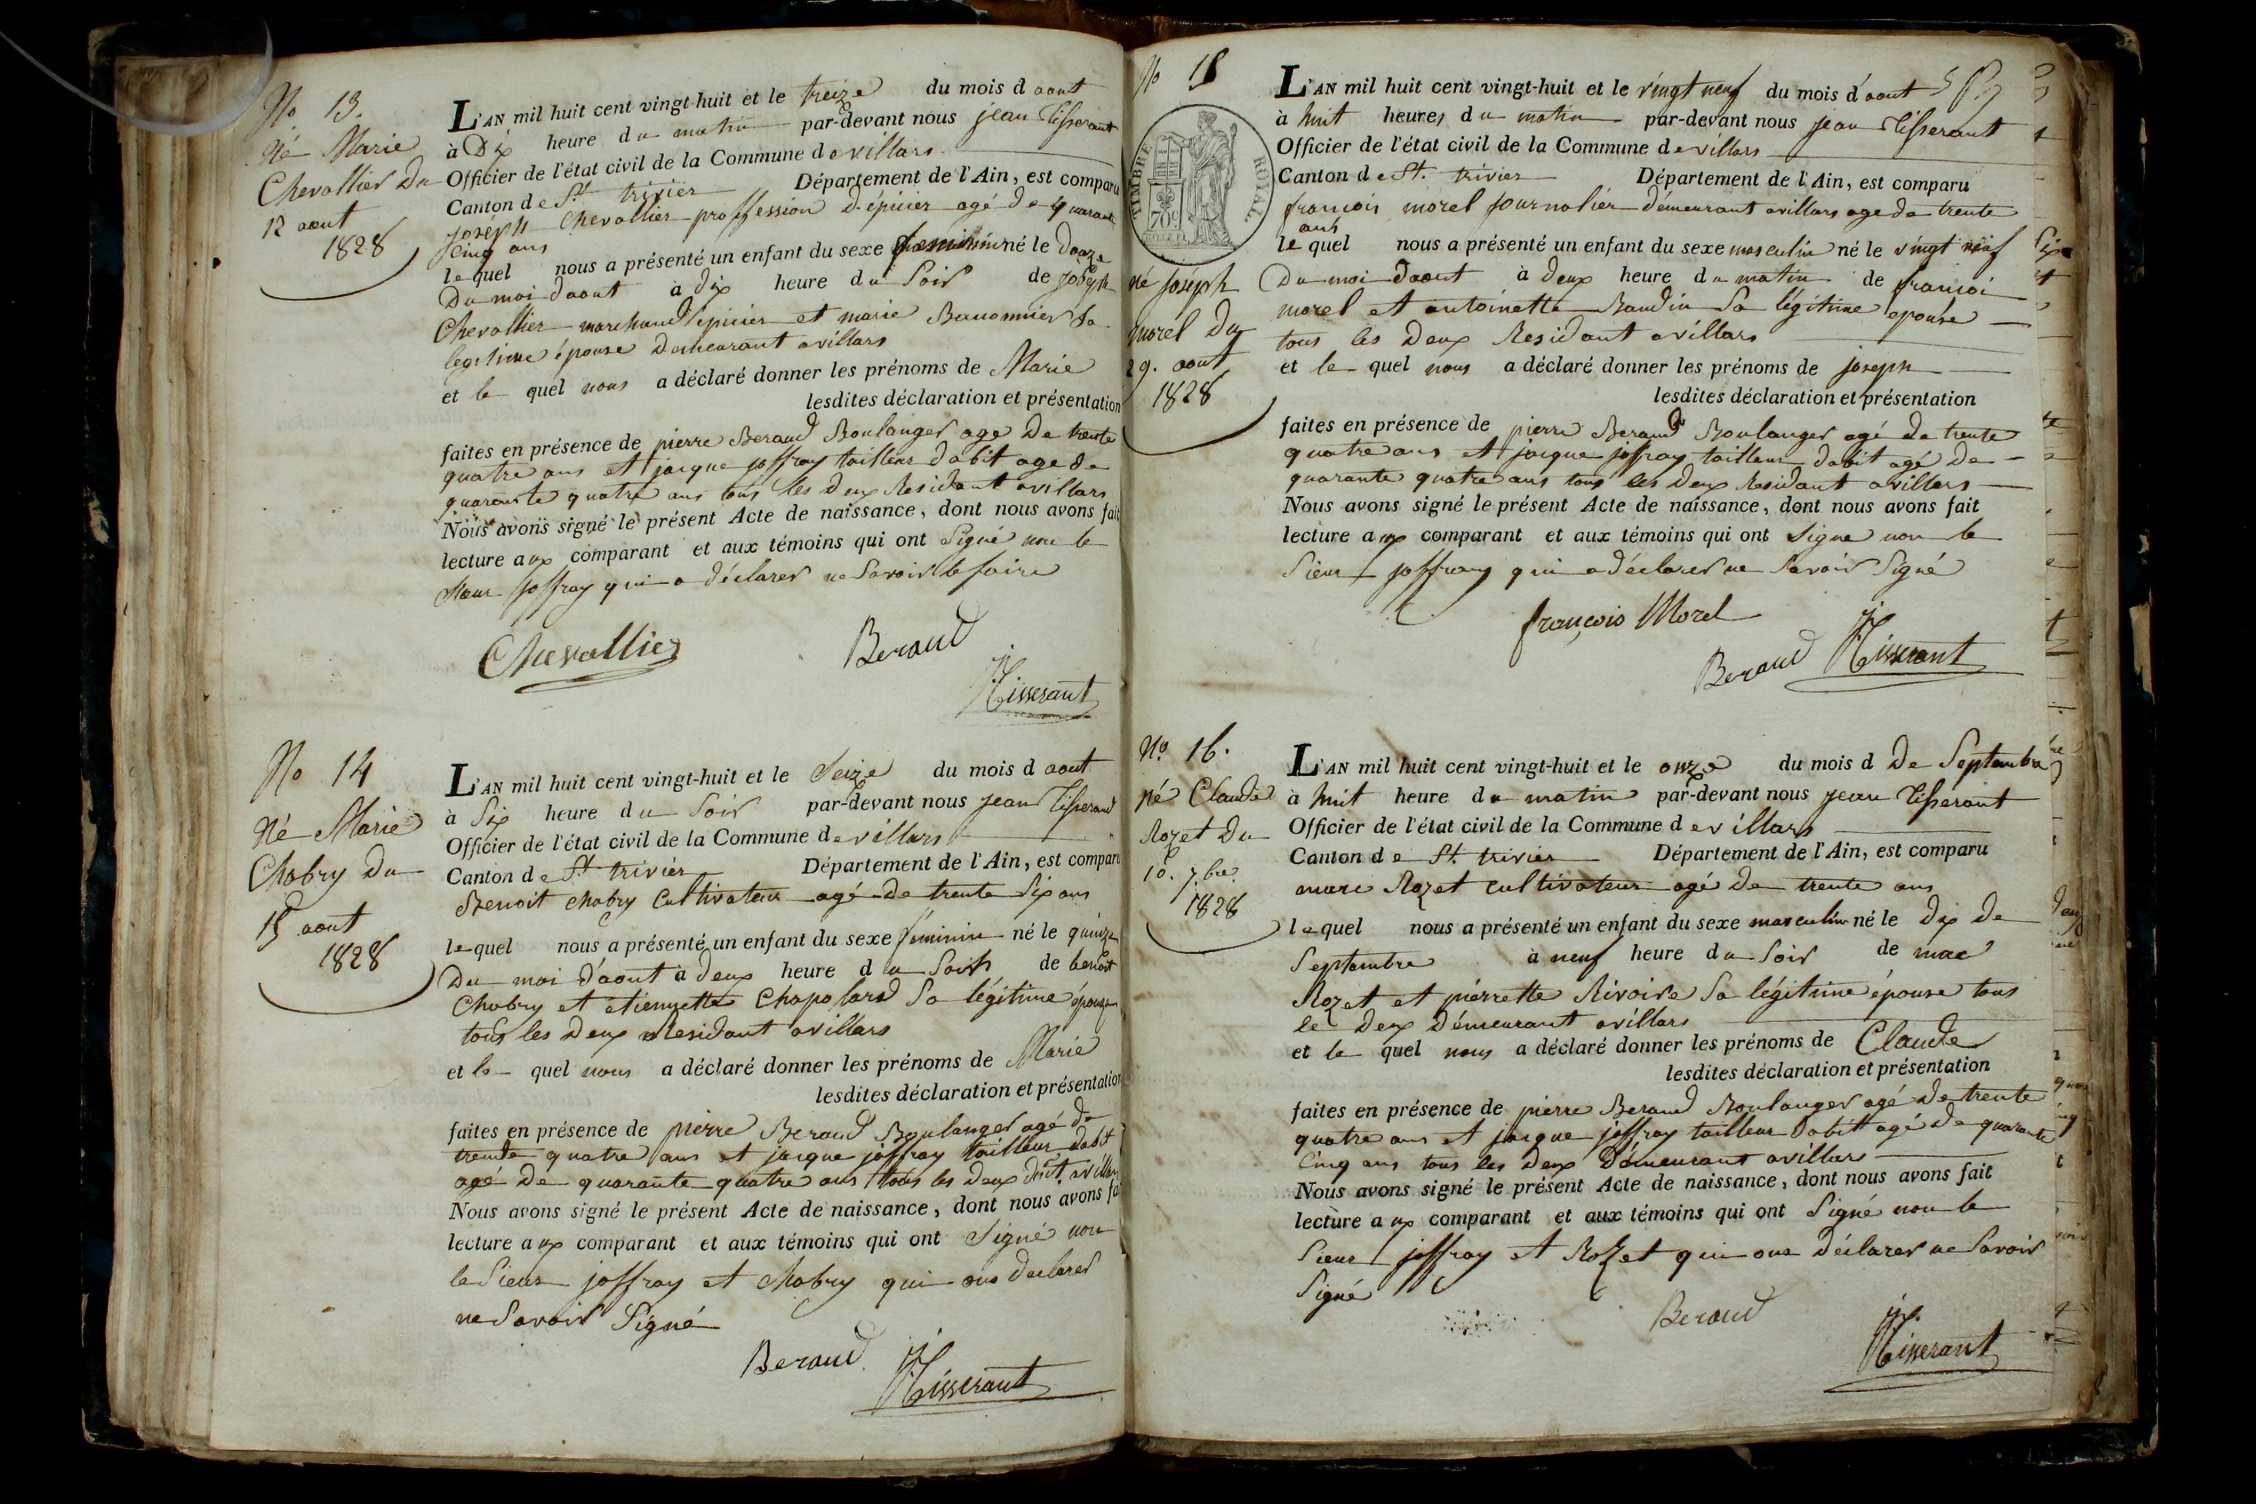 No 13.
né Marie
Chevallier du
12 aout
1828
L'AN mil huit cent vingt-huit et le treize du mois d aout
à Dix heure du matin par-devant nous jean Tisserant
Officier de l'état civil de la Commune de villars
Canton de St trivier Département de l'Ain, est comparu
joseph Chevallier proffession d'épicier agé de quarante
cinq ans
lequel nous a présenté un enfant du sexe feminin né le douze
Du moi d'aout à dix heure du Soir de joseph
Chevallier marchand épicier et marie Sa
legitime épouse Demeurant avillars
et le quel nous a déclaré donner les prénoms de Marie
lesdites déclaration et présentation
faites en présence de pierre Beraud Boulanger age De trente
quatre ans et jacque joffray tailleur dabit age de
quarante quatre ans tous les deux Residant avillars
Nous avons signé le présent Acte de naissance, dont nous avons fait
lecture aux comparant et aux témoins qui ont Signé non le
Sieur joffray qui a déclarer ne Savoir le faire
Chevallier Beraud
jTisserant
No 14
Né Marie
Chabry du
15 aout
1828
L'AN mil huit cent vingt-huit et le Seize du mois d aout
à Six heure du Soir par-devant nous jean Tisserand
Officier de l'état civil de la Commune de villars
Canton de St trivier Département de l'Ain, est comparu
Benoit chabry Cultivateur agé de trente Six ans
lequel nous a présenté un enfant du sexe féminin né le quinze
Du moi d'aout à deux heure du Soir de benoit
Chabry et étiennette Chapolard Sa légitime épouse
tous les Deux Residant avillars
et le quel nous a déclaré donner les prénoms de Marie
lesdites déclaration et présentation
faites en présence de pierre Beraud Boulanger agé de
trente quatre ans et jacque joffray tailleur dabit
agé De quarante quatre ans tous les deux dmt. avillars
Nous avons signé le présent Acte de naissance, dont nous avons fai
lecture aux comparant et aux témoins qui ont Signé non
le Sieur joffray et chabry qui ons declarer
ne Savoir Signé
Beraud jTisserant
No 15
TIMBRE ROYAL
70c
né joseph
morel du
29. aout
1828
L'AN mil huit cent vingt-huit et le vingt neuf du mois d'aout
à huit heures du matin par-devant nous jean Tisserant
Officier de l'état civil de la Commune de villars
Canton de St. trivier Département de l'Ain, est comparu
francois morel journalier démeurant avillars age de trente
ans
le quel nous a présenté un enfant du sexe masculin né le vingt neuf
Du moi d'aout à Deux heure du matin de francoi
morel et antoinette Baudin Sa légitime épouse
tous les Deux Residant avillars
et le quel nous a déclaré donner les prénoms de joseph
lesdites déclaration et présentation
faites en présence de pierre Beraud Boulanger agé de trente
quatre ans et jacque joffray tailleur dabit agé De
quarante quatre ans tous les Deux Residant avillars
Nous avons signé le présent Acte de naissance, dont nous avons fait
lecture aux comparant et aux témoins qui ont Signe non le
Sieur joffray qui a déclarer ne Savoir Signé
françois Morel
Beraud jTisserant
No. 16.
né Claude
Rozet du
10. 7.bre.
1828
L'AN mil huit cent vingt-huit et le onze du mois d De Septembre
à huit heure du matin par-devant nous jean Tisserant
Officier de l'état civil de la Commune de villars
Canton de St. trivier Département de l'Ain, est comparu
marc Rozet cultivateur agé De trente ans
lequel nous a présenté un enfant du sexe masculin né le Dix De
Septembre à neuf heure du Soir de marc
Rozet et pierrette Rivoire Sa légitime épouse tous
le Deux Démeurant avillars
et le quel nous a déclaré donner les prénoms de Claude
lesdites déclaration et présentation
faites en présence de pierre Beraud Boulanger agé De trente
quatre ans et jacque joffray tailleur dabit agé De quarante
Cinq ans tous les Deux Démeurant avillars
Nous avons signé le présent Acte de naissance, dont nous avons fait
lecture aux comparant et aux témoins qui ont Signé non le
Sieur joffray et Rozet qui ons Déclarer ne Savoir
Signé
Beraud
jTisserant